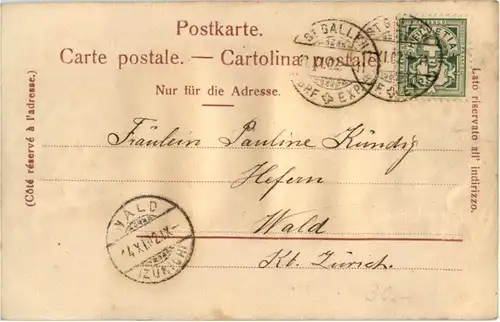 Postkarte.
Carte postale. — Cartolina postale.
Nur für die Adresse.
(Côté réservé à l'adresse.)
Lato riservato all' indirizzo.
HELVETIA
ST GALLEN
BRF. EXP.
Fräulein Pauline Kündig
Hefern
Wald
Kt. Zürich.
WALD
(ZÜRICH)
30.-